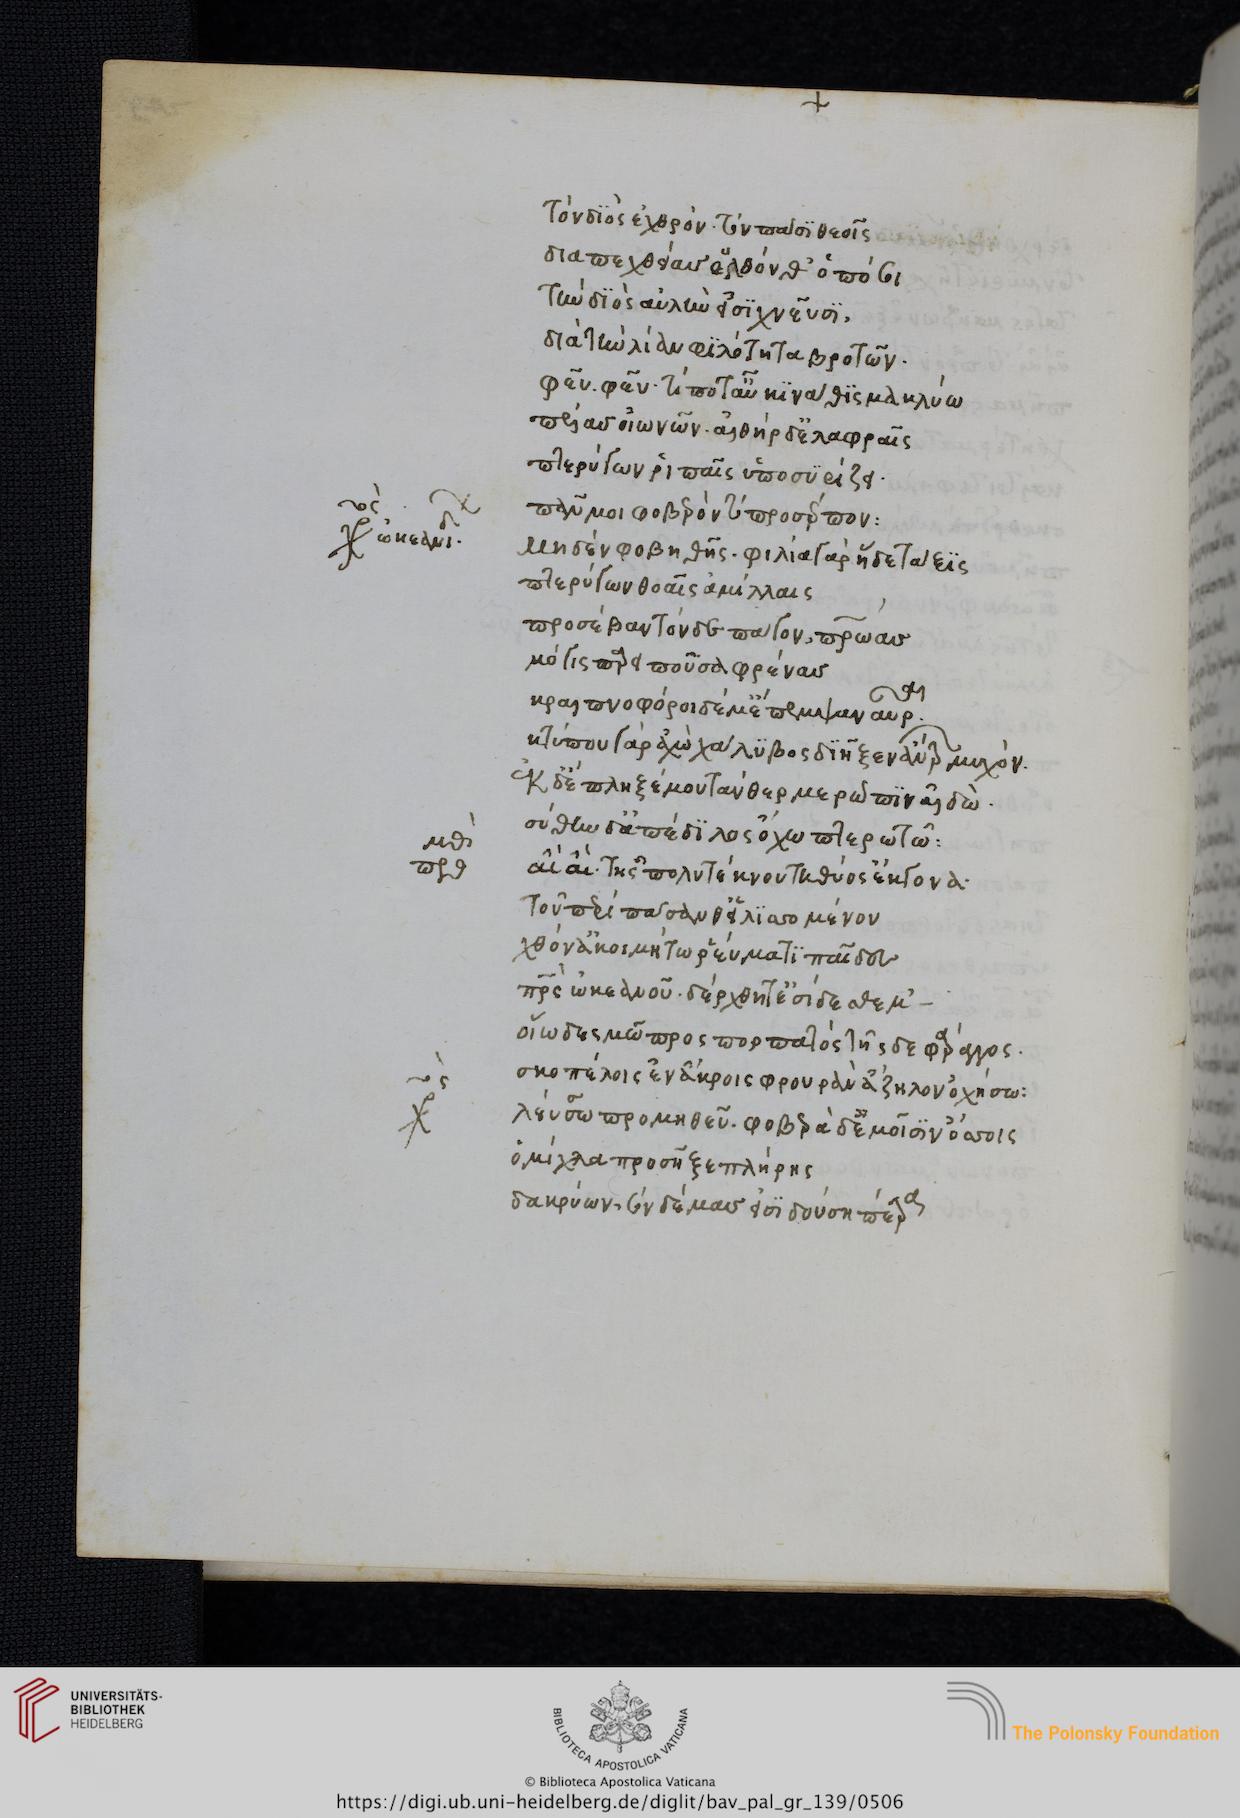 τὸν διὸς ἐχθρὸν· τὸν πᾶσι θεοῖς
δι ἀπεχθείας ἐλθόνθ' ὁπόσοι
τὴν διὸς αὐλὴν εἰσοιχνεῦσι,
διὰ τὴν λίαν φιλότητα βροτῶν.
φεῦ. φεῦ· τί ποτ αὖ κινάθισμα κλύω
πέλας οἰωνῶν. αἰθὴρ δ ἐλαφραῖς
πτερύγων ῥιπαῖς ὑποσυρίζει·
πᾶν μοι φοβερὸν τὸ προσέρπον:
χορὸς ὠκεανίδ.
μηδὲν φοβηθῇς. φιλία γὰρ ἥδε τάξις
πτερύγων θοαῖς ἁμίλλαις
προσέβα τόνδε πάγον, πατρώας
μόγις παρειποῦσα φρένας
κραιπνοφόροι δέ μ ἔπεμψαν αὖραι.
κτύπου γὰρ ἀχὼ χάλυβος διῆξεν ἄντρων μυχὸν.
ἐκ δ ἔπληξέ μου τὰν θερμερῶπιν αἰδῶ.
σύθην δ ἀπέδιλος ὄχῳ πτερωτῷ:
πρμθ
αἶ αἶ. τῆς πολυτέκνου τηθύος ἔκγονα.
τοῦ περὶ πᾶσαν θ εἱλισσομένου
χθόν ἀκοιμήτῳ ῥεύματι παῖδες
πατρὸς ὠκεανοῦ. δέρχθητ ἐσίδεσθε μ'
οἵῳ δεσμῷ προσπορπατὸς τῆσδε φάραγγος.
σκοπέλοις ἐν ἄκροις φρουρὰν ἄζηλον ὀχήσω:
χορὸς
λεύσσω προμηθεῦ. φοβερὰ δ ἐμοῖσιν ὄσσοις
ὀμίχλα προσῇξε πλήρης
δακρύων, σὸν δέμας εἰσιδούσῃ πέτρᾳ
UNIVERSITÄTS-
BIBLIOTHEK
HEIDELBERG
BIBLIOTECA APOSTOLICA VATICANA
The Polonsky Foundation
© Biblioteca Apostolica Vaticana
https://digi.ub.uni-heidelberg.de/diglit/bav_pal_gr_139/0506